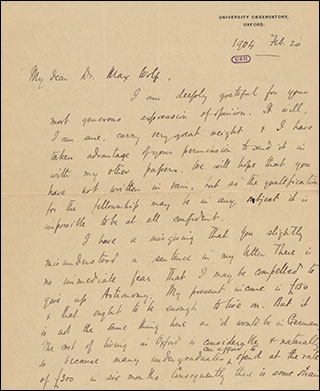 UNIVERSITY OBSERVATORY,
OXFORD.
1904 Feb. 20
UBH
My dear Dr. Max Wolf,
I am deeply grateful for your
most generous expression of opinion. It will,
I am sure, carry very great weight & I have
taken advantage of your permission to send it in
with my other papers. We will hope that you
have not written in vain, but as the qualification
for the fellowship may be in any subject it is
impossible to be at all confident.
I have a misgiving that you slightly
misunderstood a sentence in my letter. There is
no immediate fear that I may be compelled to
give up Astronomy. My present income is £150
& that ought to be enough to live on. But it
is not the same thing here as it would be in German
The cost of living in Oxford is considerable & naturally
so because many undergraduates spend at the rate
of £300 in six months. Consequently there is some